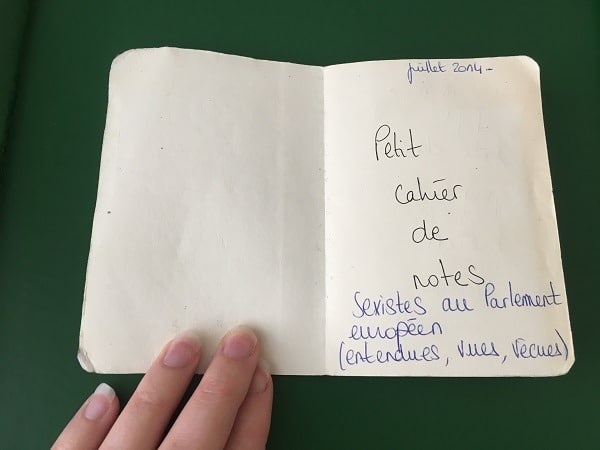 juillet 2014-
Petit
cahier
de
notes
Sexistes au Parlement
européen
(entendues, vues, vécues)